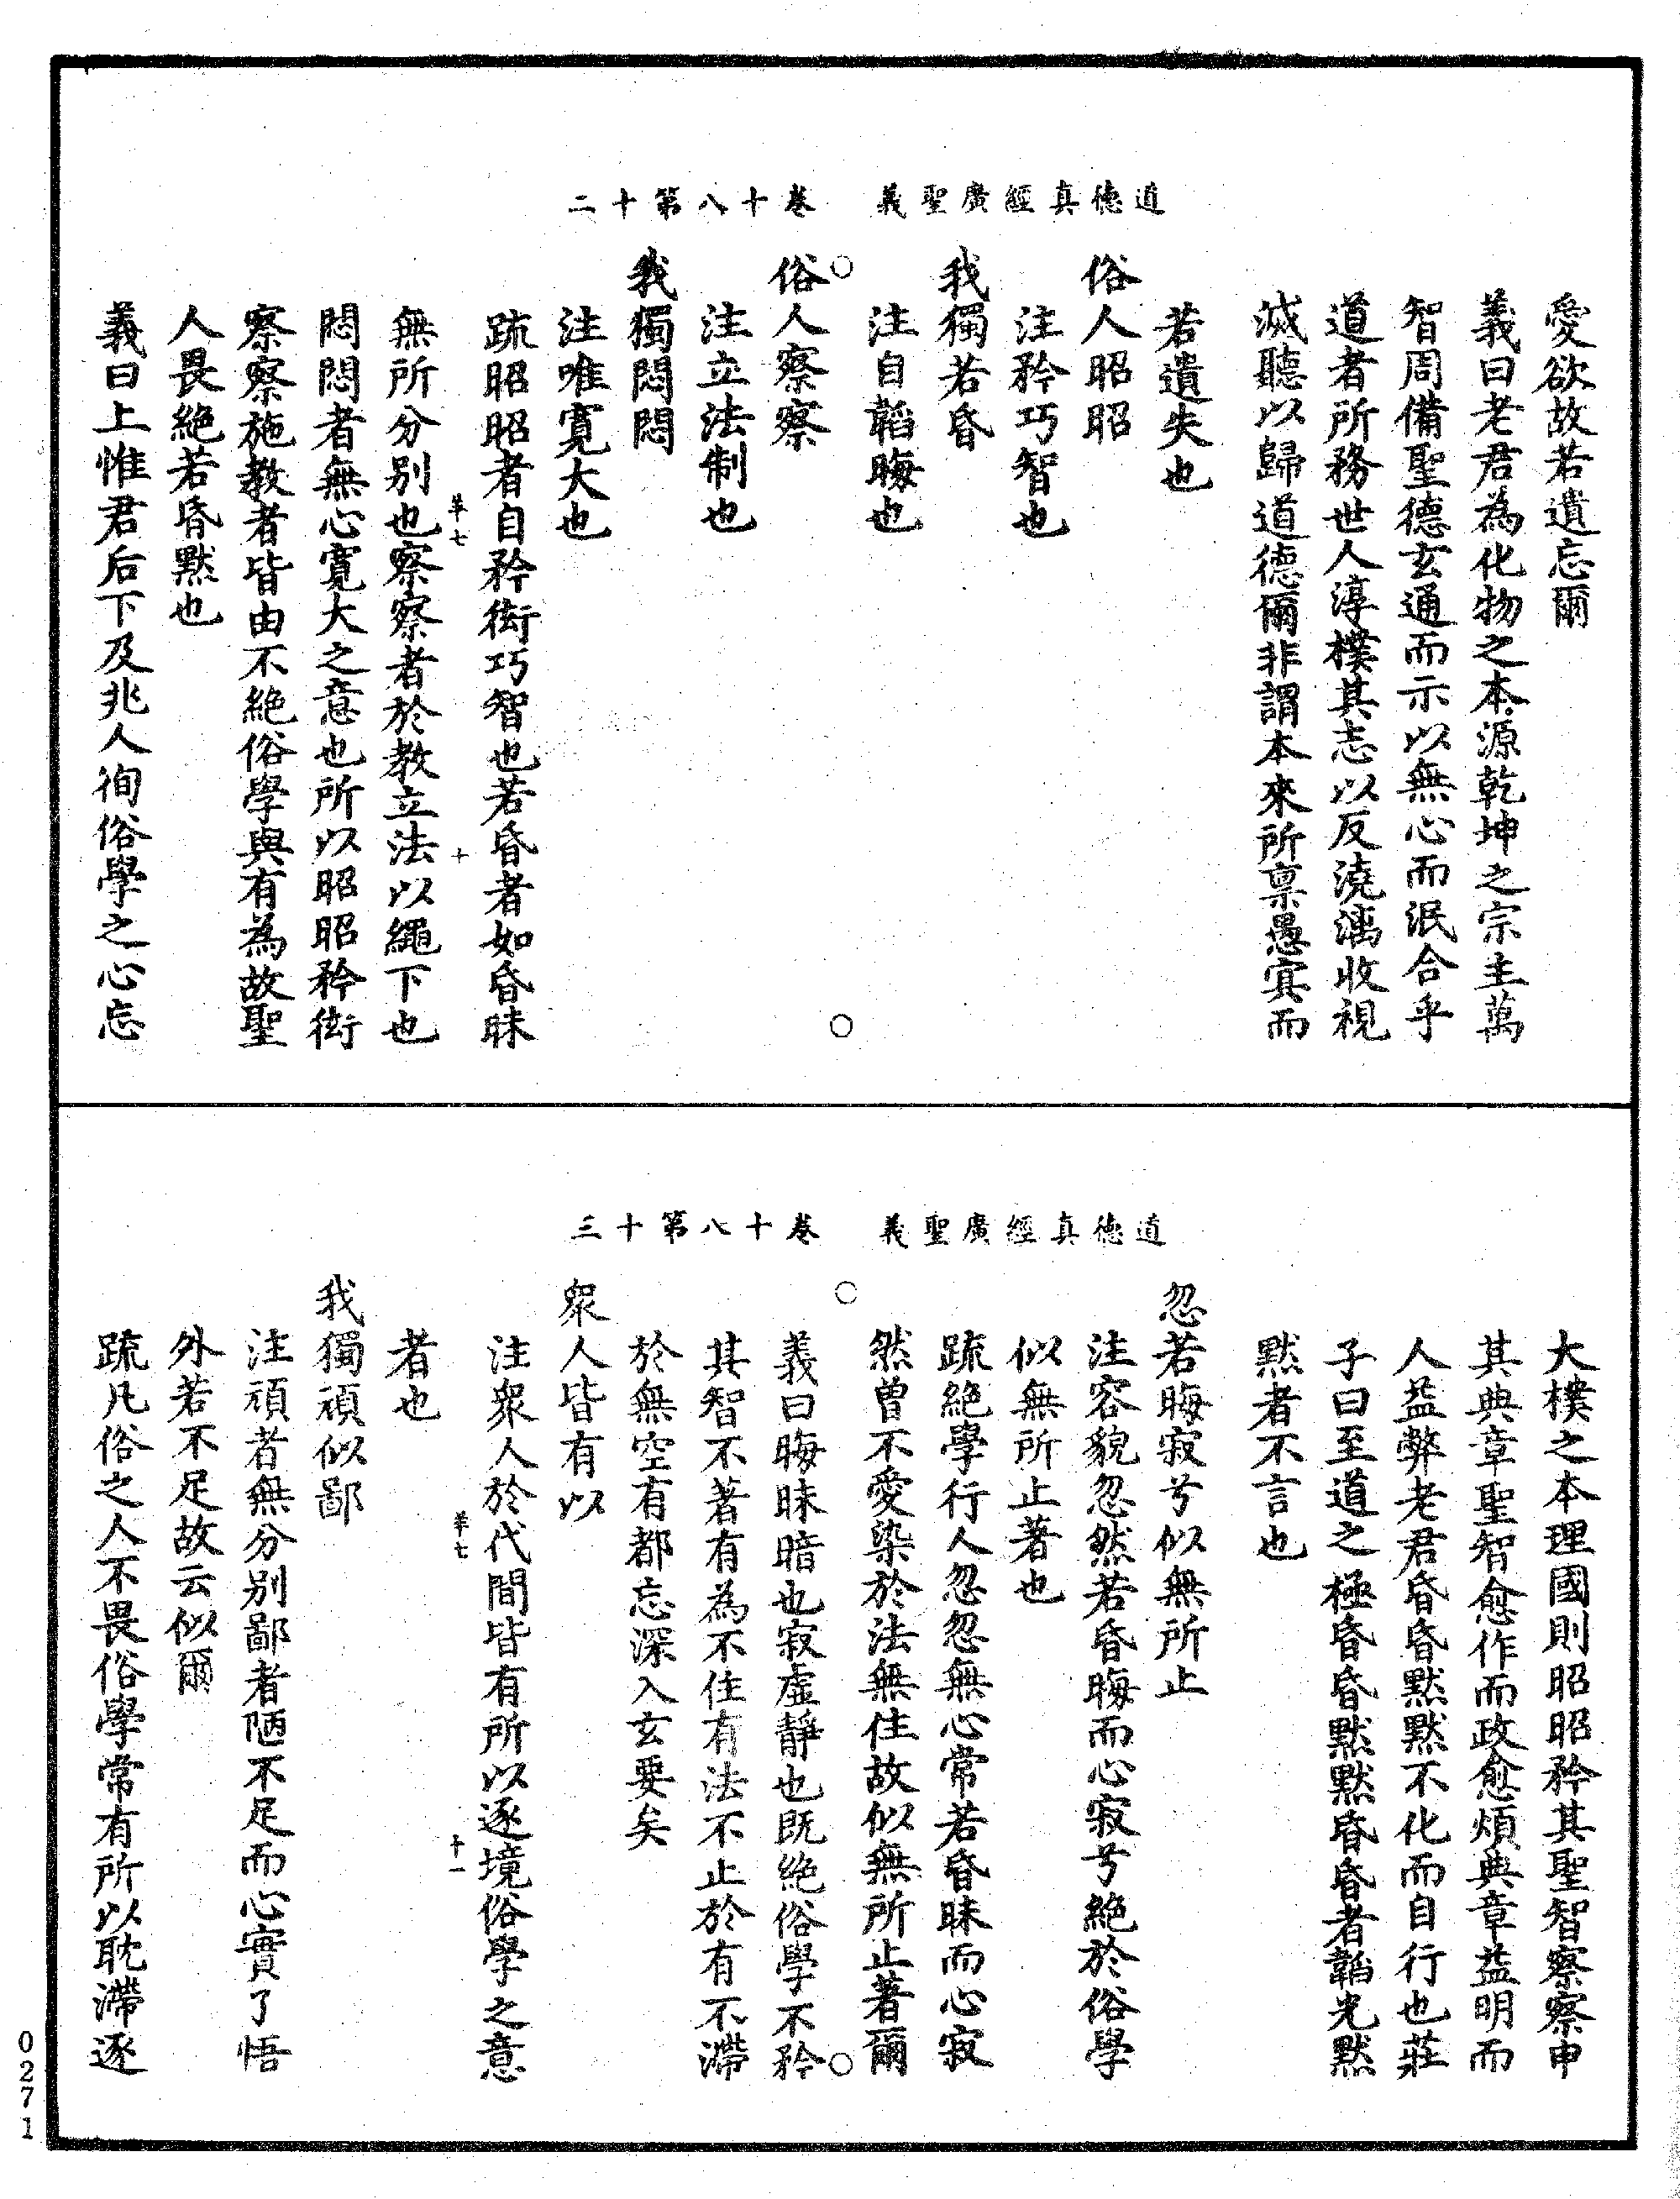 道德真經廣聖義　卷十八第十二
愛欲故若遺忘爾
義曰老君為化物之本源乾坤之宗主萬
智周備聖德玄通而示以無心而泯合乎
道者所務世人淳樸其志以反澆漓收視
滅聽以歸道德爾非謂本來所稟愚㝠而
若遺失也
俗人昭昭
注矜巧智也
我獨若昏
注自韜晦也
俗人察察
注立法制也
我獨悶悶
注唯寬大也
疏昭昭者自矜衒巧智也若昏者如昏昧
羊七　十
無所分别也察察者於教立法以繩下也
悶悶者無心寛大之意也所以昭昭矜衒
察察施教者皆由不絶俗學與有為故聖
人畏絶若昏默也
義曰上惟君后下及兆人徇俗學之心忘
道德真經廣聖義　卷十八第十三
大樸之本理國則昭昭矜其聖智察察申
其典章聖智愈作而政愈煩典章益明而
人益弊老君昏昏默默不化而自行也莊
子曰至道之極昏昏默默昏昏者韜光默
默者不言也
忽若晦寂兮似無所止
注容貌忽然若昏晦而心寂兮絶於俗學
似無所止著也
疏絶學行人忽忽無心常若昏昧而心寂
然曾不愛染於法無住故似無所止著爾
義曰晦昧暗也寂虛靜也既絶俗學不矜
其智不著有為不住有法不止於有不滯
於無空有都忘深入玄要矣
衆人皆有以
注衆人於代間皆有所以逐境俗學之意
羊七　十一
者也
我獨頑似鄙
注頑者無分别鄙者陋不足而心實了悟
外若不足故云似爾
疏凡俗之人不畏俗學常有所以耽滯逐
0271